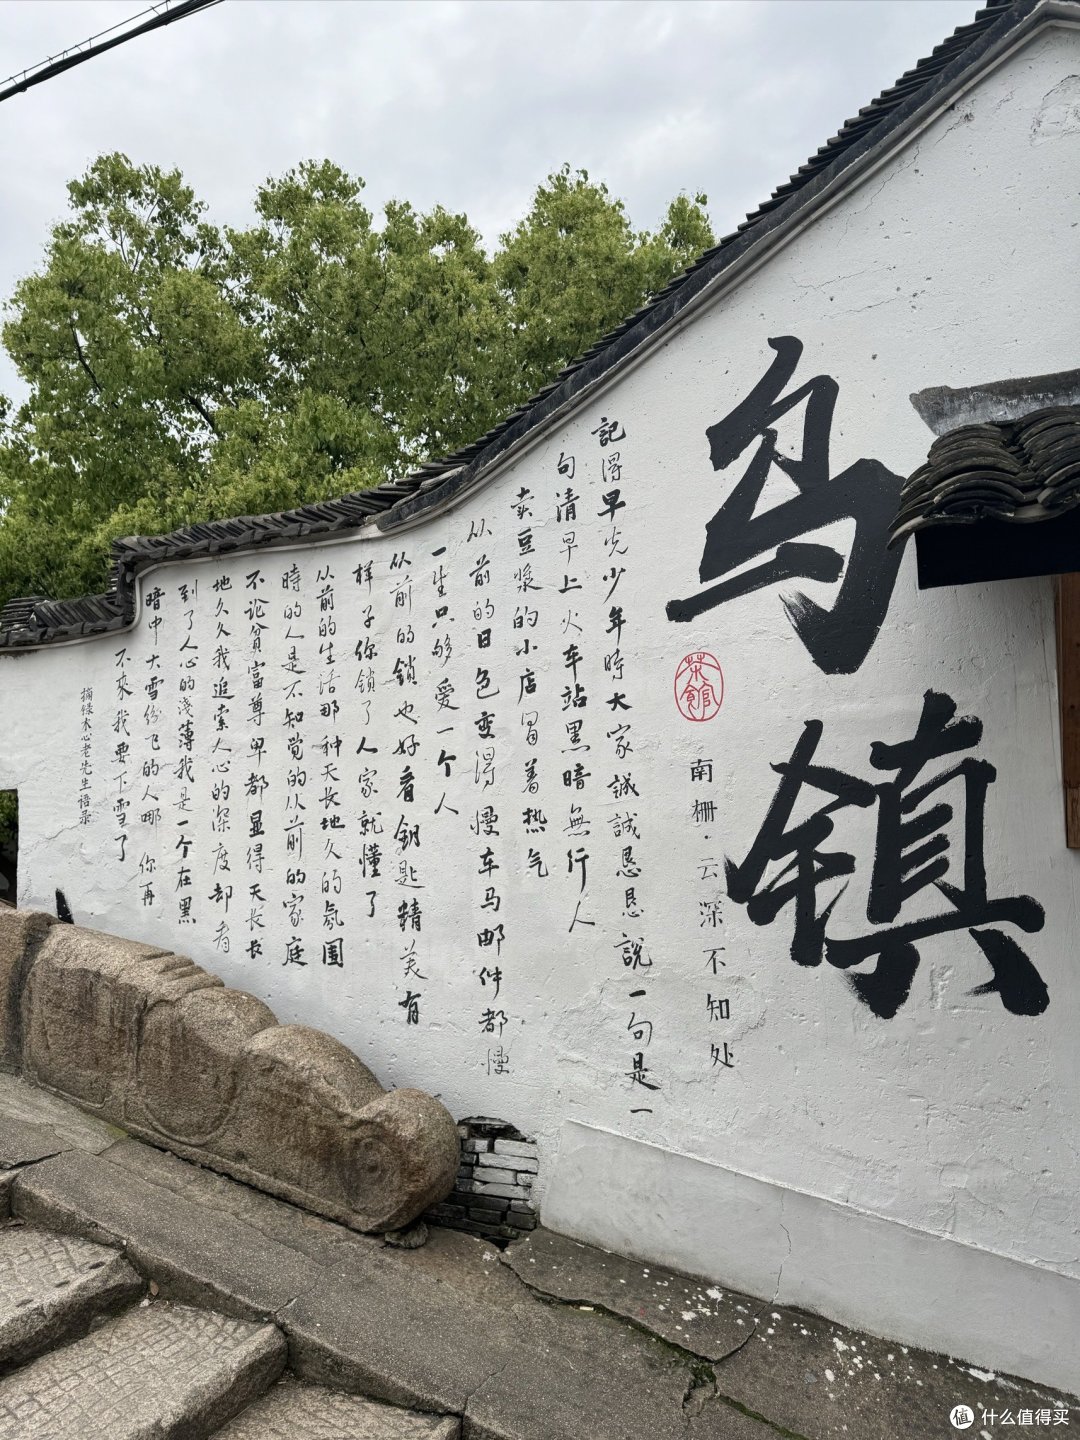 乌镇
茶館
南栅·云深不知处
記得早先少年時大家誠誠恳恳說一句是一
句清早上火车站黑暗無行人
卖豆漿的小店冒着热气
从前的日色变得慢车马邮件都慢
一生只够爱一个人
从前的鎖也好看钥匙精美有
样子你鎖了人家就懂了
从前的生活那种天长地久的氛围
時的人是不知觉的从前的家庭
不论贫富尊卑都显得天长长
地久久我追索人心的深度却看
到了人心的淺薄我是一个在黑
暗中大雪纷飞的人哪 你再
不來我要下雪了
摘録木心老先生语录
值 什么值得买